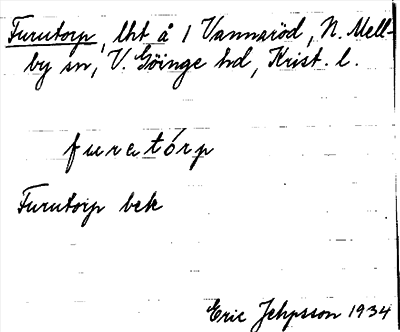 Furutorp, lht å 1 Vannaröd, N. Mell-
by sn, V. Göinge hd, Krist. l.
furutórp
Furutorp bek
Eric Jehpsson 1934